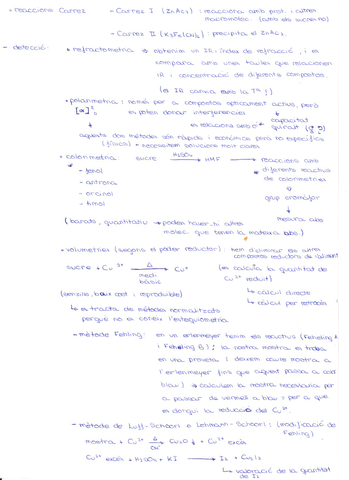 - reaccions Carrez - Carrez I (ZnAc₂) : reacciona amb prot. i altres
macromolec (amb els sucres no)
- Carrez II (K₄Fe(CN)₆) : precipita el ZnAc₂.
- detecció: • refractometria → obtenim un IR: índex de refracció, i es
compara amb unes taules que relacionen
IR i concentració de diferents compostos.
(el IR canvia amb la Tª!)
• polarimetria: només per a compostos òpticament actius, però
[α] es poden donar interferències
es relaciona amb capacitat
quiral
aquests dos mètodes són ràpids i econòmics però no específics
(físics) - necessitem solucions molt clares
• colorimetria sucre H₂SO₄ → HMF → reacciona amb
- fenol diferents reactius
- antrona de colorimetries
- orcinol grup cromòfor
- timol ↓
mesura abs
(barats, quantitatiu → poden haver-hi altres
molec que tenen la mateixa abs.)
• volumetries (segons el poder reductor): hem d'eliminar els altres
compostos reductors de
sucre + Cu²⁺ Δ → Cu⁺ (es calcula la quantitat de
medi Cu²⁺ reduït)
bàsic ↳ càlcul directe
(senzills, baix cost i reproduïble) ↳ càlcul per retrocés
↳ es tracta de mètodes normalitzats
perquè no es coneix l'estequiometria
- mètode Fehling: en un erlenmeyer tenim els reactius (Fehling A
i Fehling B); la nostra mostra es troba
en una proveta i deixem caure mostra a
l'erlenmeyer fins que aquest passa a color
blau → calculem la mostra necessària per
a passar de vermell a blau = per a que
es dongui la reducció del Cu²⁺
- mètode de Luff-Schoorl o Lehmann-Schoorl: (modificació de
Fehling)
mostra + Cu²⁺ Δ → Cu₂O↓ + Cu²⁺ excés
OH⁻
Cu²⁺ excés + H₂SO₄ + KI → I₂ + Cu₂I₂
↳ valoració de la quantitat
de I₂